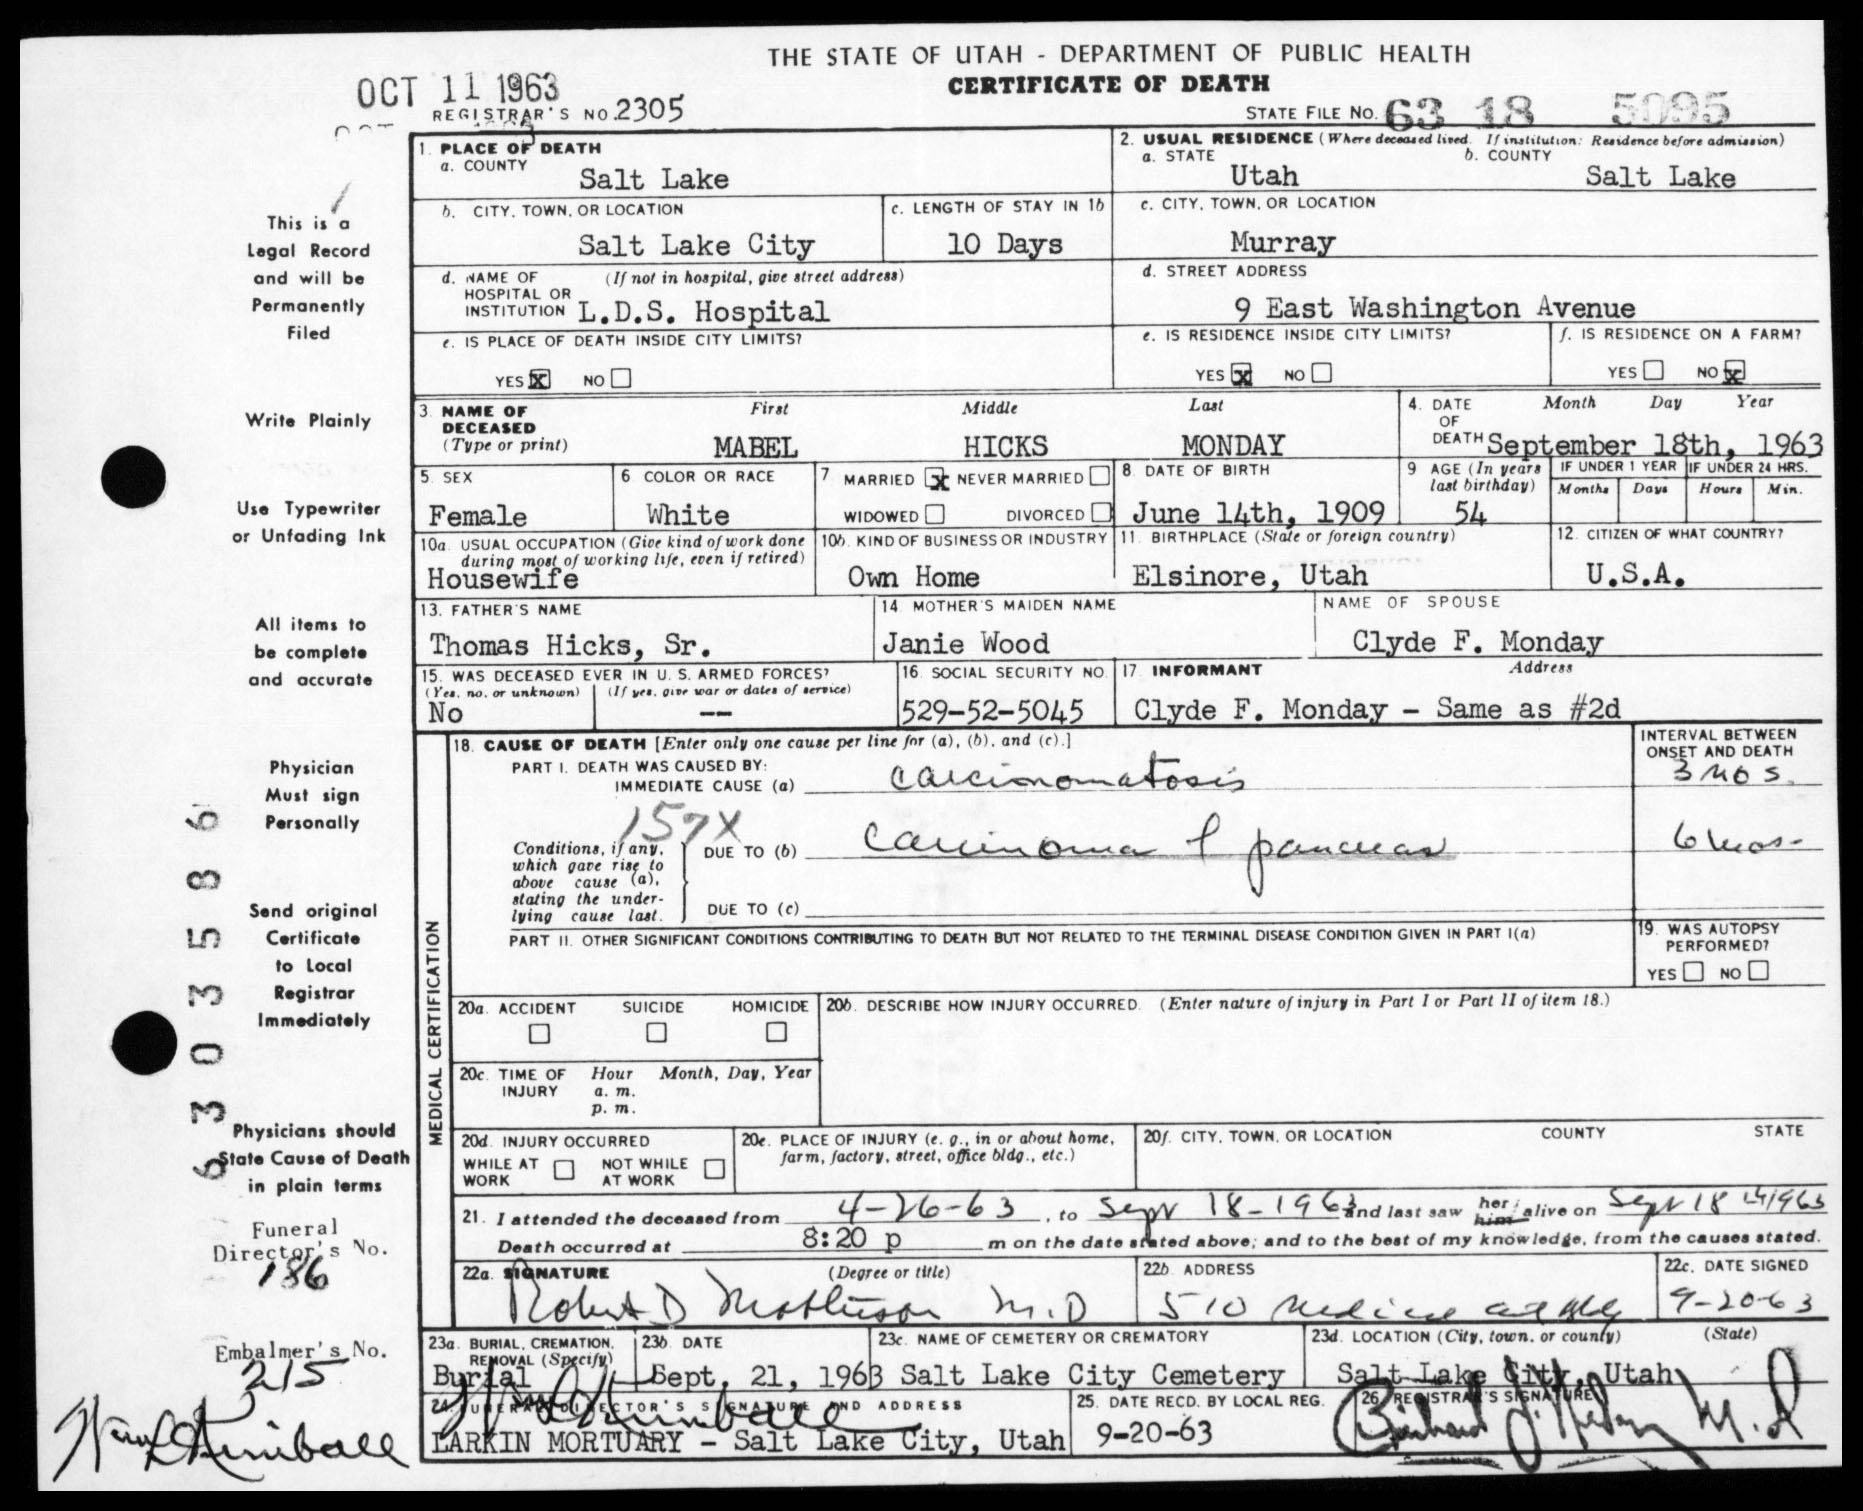 THE STATE OF UTAH - DEPARTMENT OF PUBLIC HEALTH
CERTIFICATE OF DEATH
OCT 11 1963
REGISTRAR'S NO. 2305
STATE FILE NO. 63 18 5095
1. PLACE OF DEATH
a. COUNTY
Salt Lake
2. USUAL RESIDENCE (Where deceased lived. If institution: Residence before admission)
a. STATE b. COUNTY
Utah Salt Lake
b. CITY, TOWN, OR LOCATION
Salt Lake City
c. LENGTH OF STAY IN 1b
10 Days
c. CITY, TOWN, OR LOCATION
Murray
d. NAME OF (If not in hospital, give street address)
HOSPITAL OR
INSTITUTION L.D.S. Hospital
d. STREET ADDRESS
9 East Washington Avenue
e. IS PLACE OF DEATH INSIDE CITY LIMITS?
YES x NO
e. IS RESIDENCE INSIDE CITY LIMITS?
YES x NO
f. IS RESIDENCE ON A FARM?
YES NO x
3. NAME OF DECEASED (Type or print)
First Middle Last
MABEL HICKS MONDAY
4. DATE OF DEATH
Month Day Year
September 18th, 1963
5. SEX
Female
6 COLOR OR RACE
White
7 MARRIED x NEVER MARRIED
WIDOWED DIVORCED
8. DATE OF BIRTH
June 14th, 1909
9 AGE (In years last birthday)
54
IF UNDER 1 YEAR IF UNDER 24 HRS.
Months Days Hours Min.
10a. USUAL OCCUPATION (Give kind of work done
during most of working life, even if retired)
Housewife
10b. KIND OF BUSINESS OR INDUSTRY
Own Home
11. BIRTHPLACE (State or foreign country)
Elsinore, Utah
12. CITIZEN OF WHAT COUNTRY?
U.S.A.
13. FATHER'S NAME
Thomas Hicks, Sr.
14 MOTHER'S MAIDEN NAME
Janie Wood
NAME OF SPOUSE
Clyde F. Monday
15. WAS DECEASED EVER IN U. S. ARMED FORCES?
(Yes, no, or unknown) (If yes, give war or dates of service)
No --
16. SOCIAL SECURITY NO.
529-52-5045
17 INFORMANT Address
Clyde F. Monday - Same as #2d
MEDICAL CERTIFICATION
18. CAUSE OF DEATH [Enter only one cause per line for (a), (b), and (c).]
INTERVAL BETWEEN
ONSET AND DEATH
PART I. DEATH WAS CAUSED BY:
IMMEDIATE CAUSE (a) carcinomatosis 3 mos.
157X
Conditions, if any,
which gave rise to
above cause (a),
stating the under-
lying cause last.
DUE TO (b) carcinoma of pancreas 6 mos-
DUE TO (c)
PART II. OTHER SIGNIFICANT CONDITIONS CONTRIBUTING TO DEATH BUT NOT RELATED TO THE TERMINAL DISEASE CONDITION GIVEN IN PART I(a)
19. WAS AUTOPSY
PERFORMED?
YES NO
20a. ACCIDENT SUICIDE HOMICIDE
20b. DESCRIBE HOW INJURY OCCURRED. (Enter nature of injury in Part I or Part II of item 18.)
20c. TIME OF INJURY Hour Month, Day, Year
a. m.
p. m.
20d. INJURY OCCURRED
WHILE AT WORK NOT WHILE AT WORK
20e. PLACE OF INJURY (e. g., in or about home,
farm, factory, street, office bldg., etc.)
20f. CITY, TOWN, OR LOCATION COUNTY STATE
21. I attended the deceased from 4-26-63, to Sept 18-1963 and last saw her/him alive on Sept 18 1963
Death occurred at 8:20 p m on the date stated above; and to the best of my knowledge, from the causes stated.
22a. SIGNATURE (Degree or title)
Robert D M.D
22b. ADDRESS
510 Medical
22c. DATE SIGNED
9-20-63
23a. BURIAL, CREMATION,
REMOVAL (Specify)
Burial
23b. DATE
Sept. 21, 1963
23c. NAME OF CEMETERY OR CREMATORY
Salt Lake City Cemetery
23d. LOCATION (City, town, or county) (State)
Salt Lake City, Utah
24. FUNERAL DIRECTOR'S SIGNATURE AND ADDRESS
Kimball
LARKIN MORTUARY - Salt Lake City, Utah
25. DATE RECD. BY LOCAL REG.
9-20-63
26. REGISTRAR'S SIGNATURE
M.D
This is a
Legal Record
and will be
Permanently
Filed
Write Plainly
Use Typewriter
or Unfading Ink
All items to
be complete
and accurate
Physician
Must sign
Personally
Send original
Certificate
to Local
Registrar
Immediately
Physicians should
State Cause of Death
in plain terms
Funeral
Director's No.
186
Embalmer's No.
215
Kimball
6 3 0 3 5 8 6